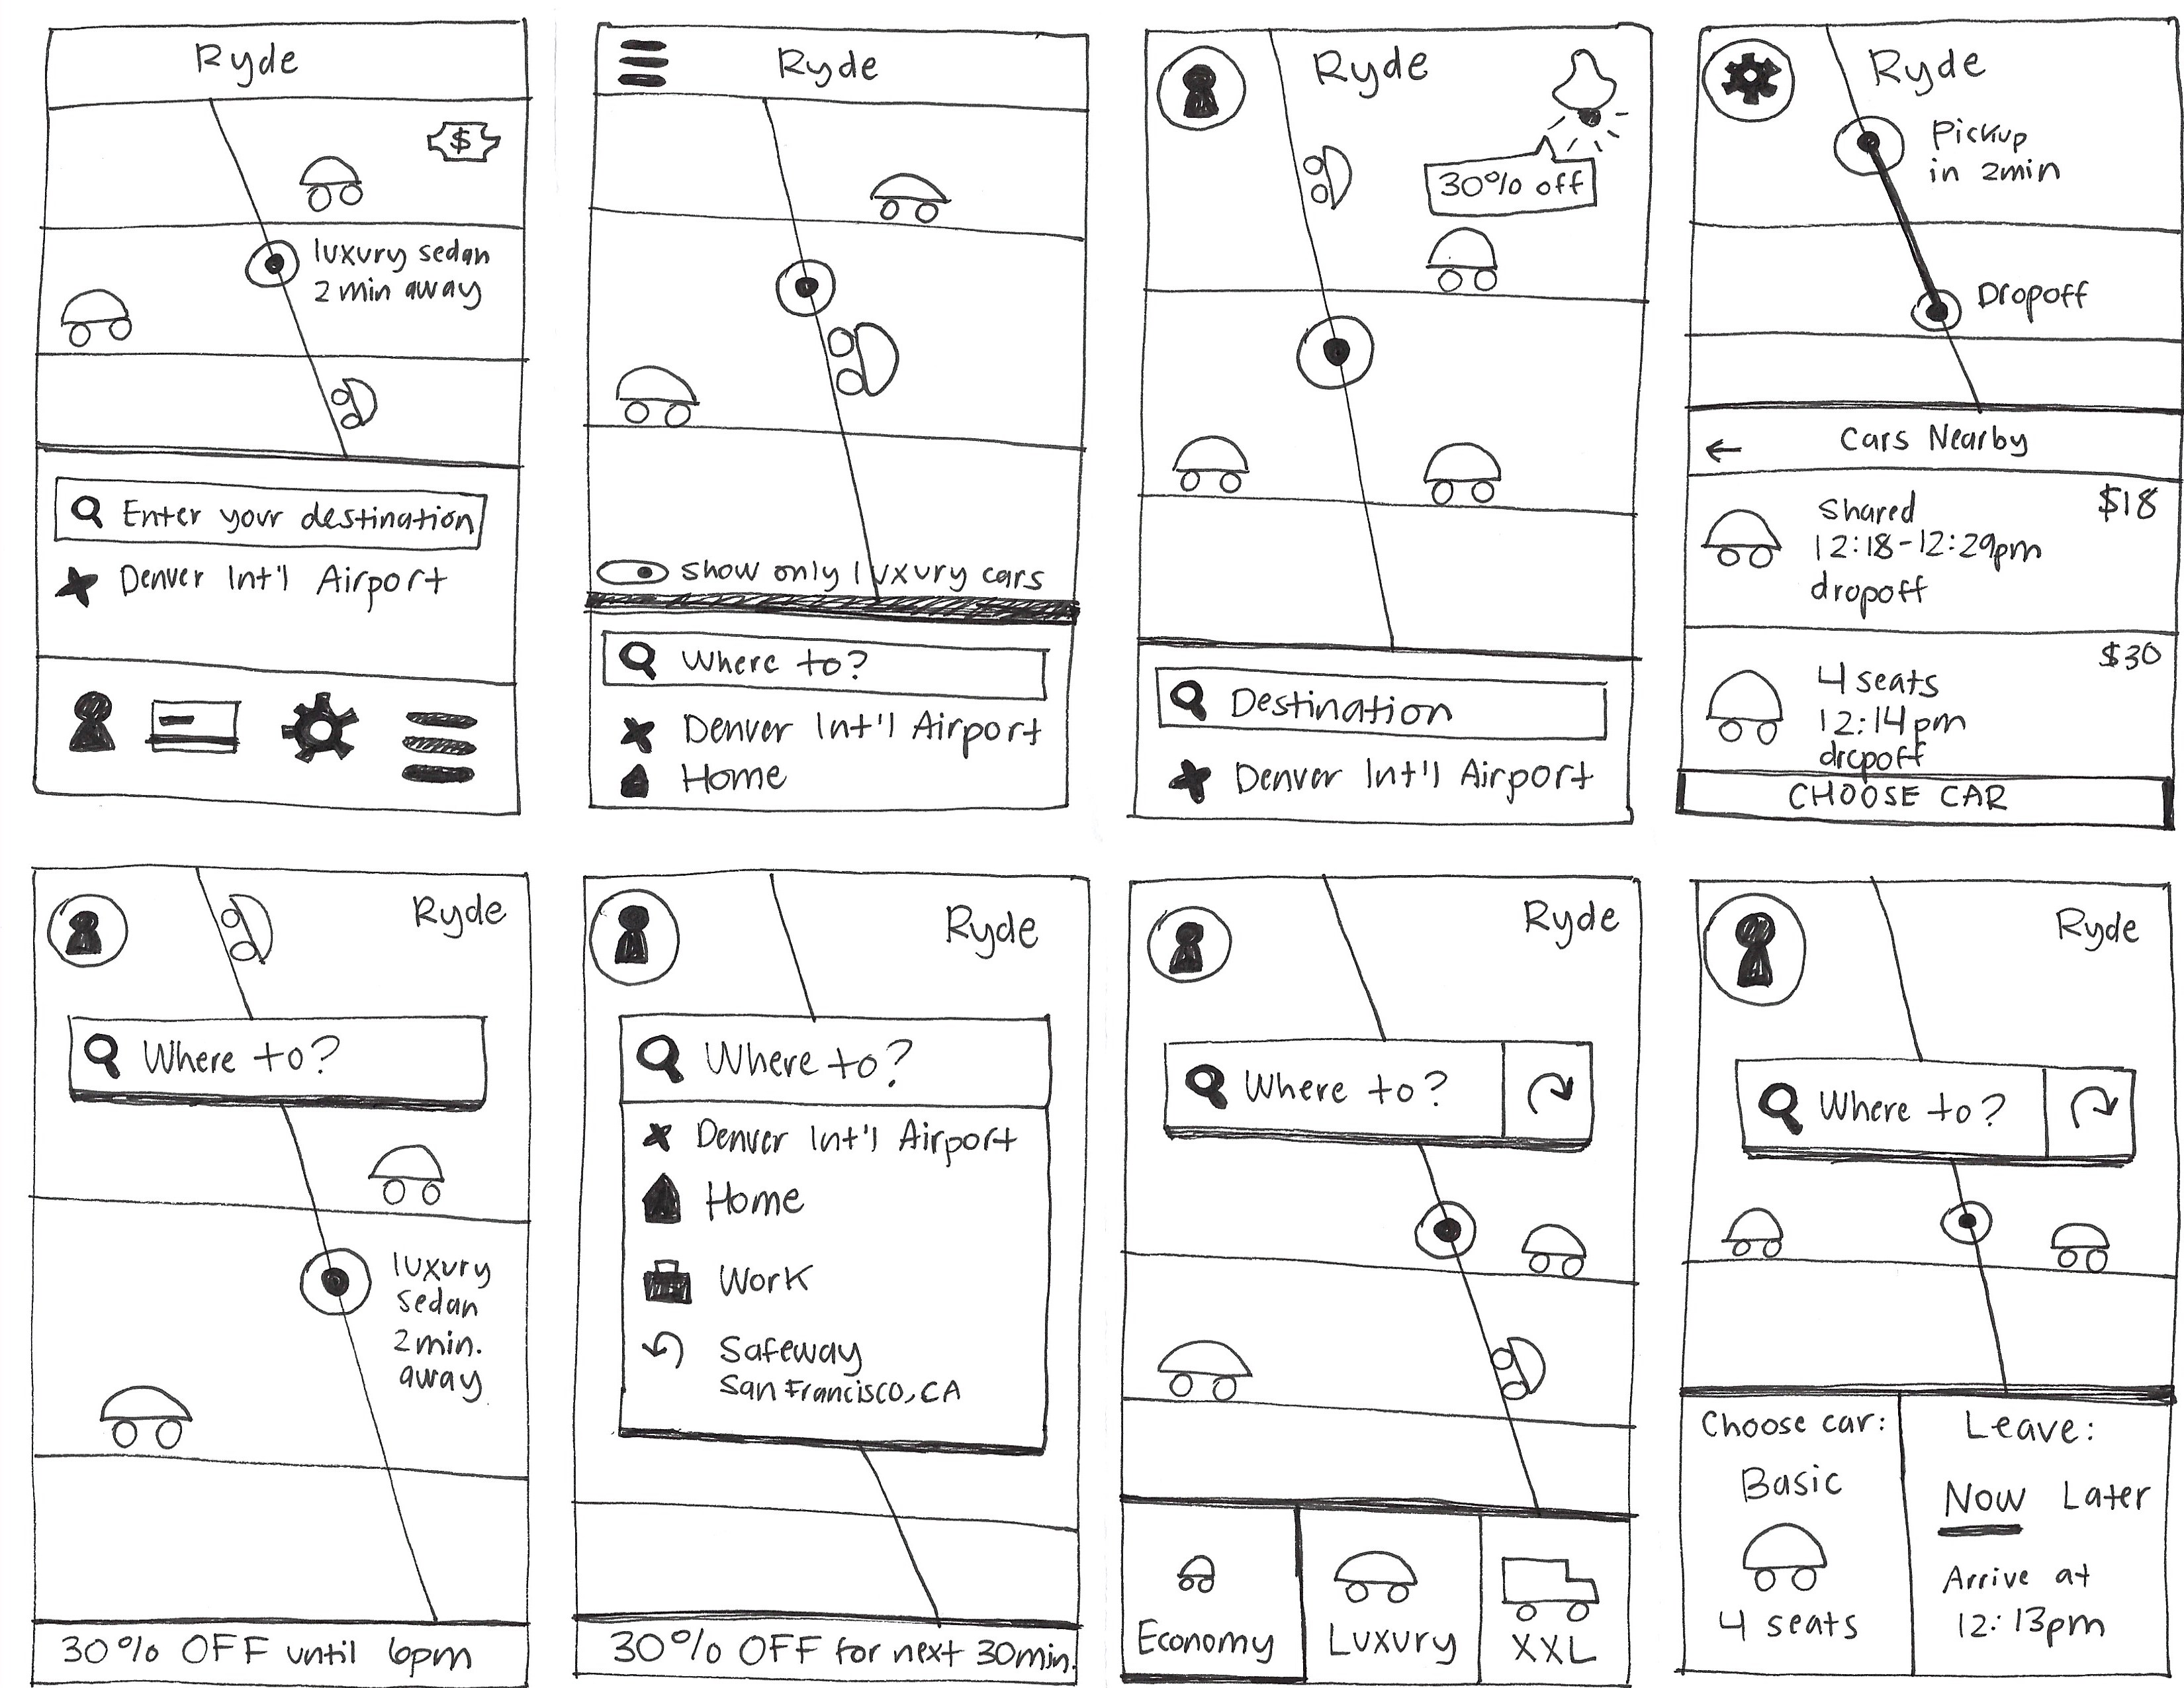 Ryde
$
luxury sedan
2 min away
Enter your destination
Denver Int'l Airport
Ryde
show only luxury cars
Where to?
Denver Int'l Airport
Home
Ryde
30% off
Destination
Denver Int'l Airport
Ryde
Pickup
in 2min
Dropoff
Cars Nearby
$18
Shared
12:18-12:29pm
dropoff
$30
4 seats
12:14pm
dropoff
CHOOSE CAR
Ryde
Where to?
luxury
sedan
2 min.
away
30% OFF until 6pm
Ryde
Where to?
Denver Int'l Airport
Home
Work
Safeway
San Francisco, CA
30% OFF for next 30min.
Ryde
Where to?
Economy
Luxury
XXL
Ryde
Where to?
Choose car:
Basic
4 seats
Leave:
Now Later
Arrive at
12:13pm